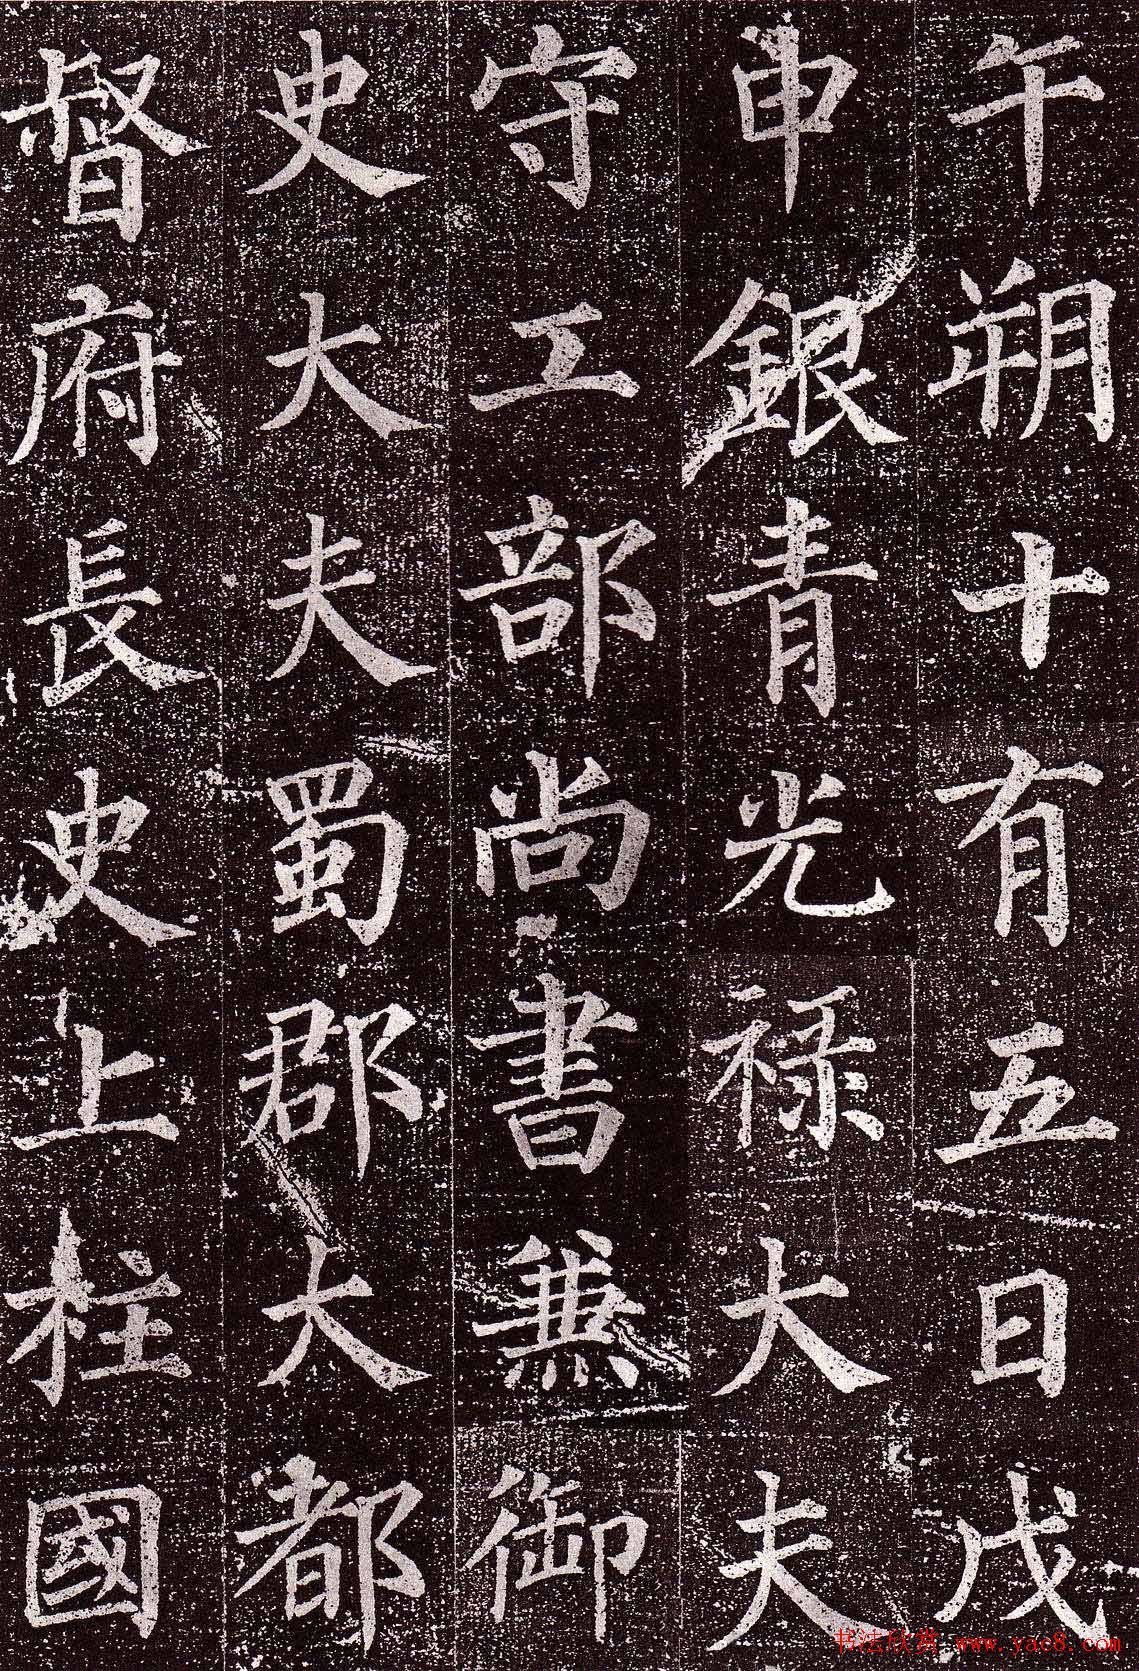 午朔十有五日戊
申銀青光禄大夫
守工部尚書兼御
史大夫蜀郡大都
督府長史上柱國
书法欣赏 www.yac8.com